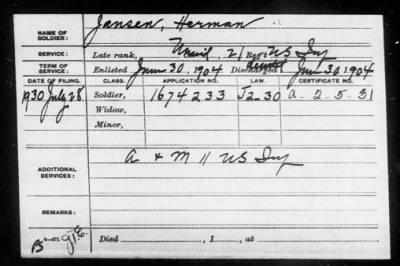 NAME OF SOLDIER: Jansen, Herman
SERVICE: Late rank, 21 Reg't US Inf
TERM OF SERVICE: Enlisted June 30, 1904 Discharged June 30 1904
DATE OF FILING. CLASS. APPLICATION NO. LAW. CERTIFICATE NO.
1930 July 28 Soldier, 1674233 J2-30 A-2-5-31
Widow,
Minor,
ADDITIONAL SERVICES: A & M 11 US Inf
REMARKS:
Died , 1 , at